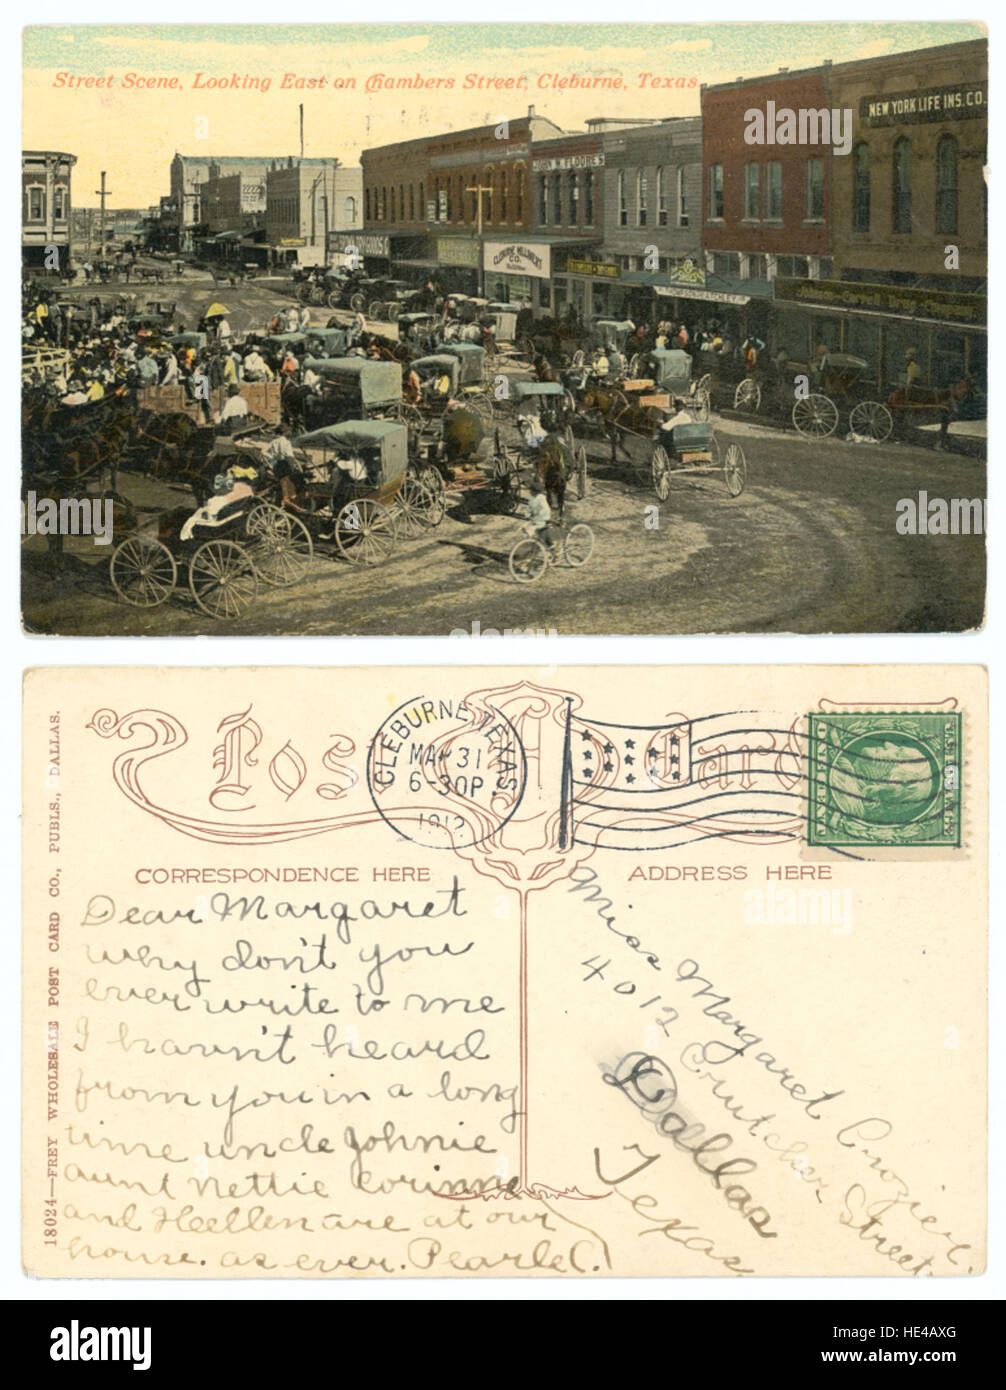 Street Scene, Looking East on Chambers Street, Cleburne, Texas.
NEW YORK LIFE INS. CO.
JOHN W. FLOORE'S
CLEBURNE MILLINERY CO.
18024—FREY WHOLESALE POST CARD CO., PUBLS., DALLAS.
Post Card
CLEBURNE, TEXAS
MAY 31
6-30P
1912
CORRESPONDENCE HERE
ADDRESS HERE
Dear Margaret
why don't you
ever write to me
I havn't heard
from you in a long
time uncle Johnie
aunt Nettie Corinne
and Heellen are at our
house. as ever. Pearle C.
Miss Margaret Crozier.
4012 Crutcher Street.
Dallas
Texas
alamy
alamy
HE4AXG
www.alamy.com